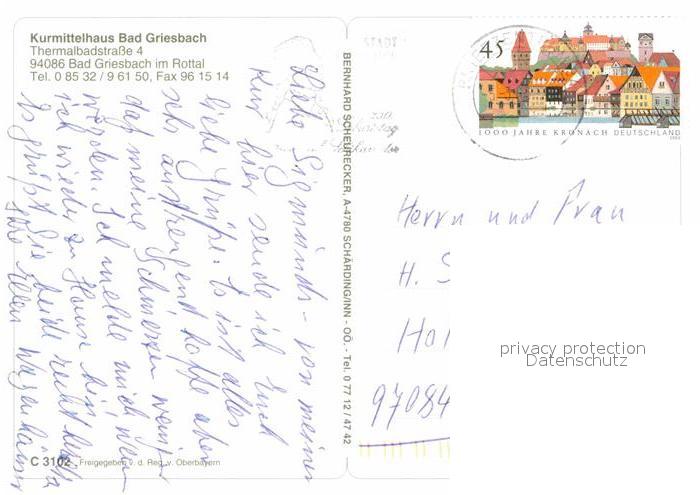 Kurmittelhaus Bad Griesbach
Thermalbadstraße 4
94086 Bad Griesbach im Rottal
Tel. 0 85 32 / 9 61 50, Fax 96 15 14
Liebe Sigmunds - von meiner
Kur hier sende ich Euch
liebe Grüße. Es ist alles
sehr anstrengend hoffe aber
daß meine Schmerzen weniger
werden. Ich melde mich wenn
ich wieder zu Hause bin
Es grüßt Sie beide recht herzl.
Ihre Ellen
C 3102 Freigegeben v. d. Reg. v. Oberbayern
BERNHARD SCHEURECKER, A-4780 SCHÄRDING/INN - OÖ. - Tel. 0 77 12 / 47 42
STADT
45
1000 JAHRE KRONACH DEUTSCHLAND
Herrn und Frau
H. S
97084
privacy protection
Datenschutz